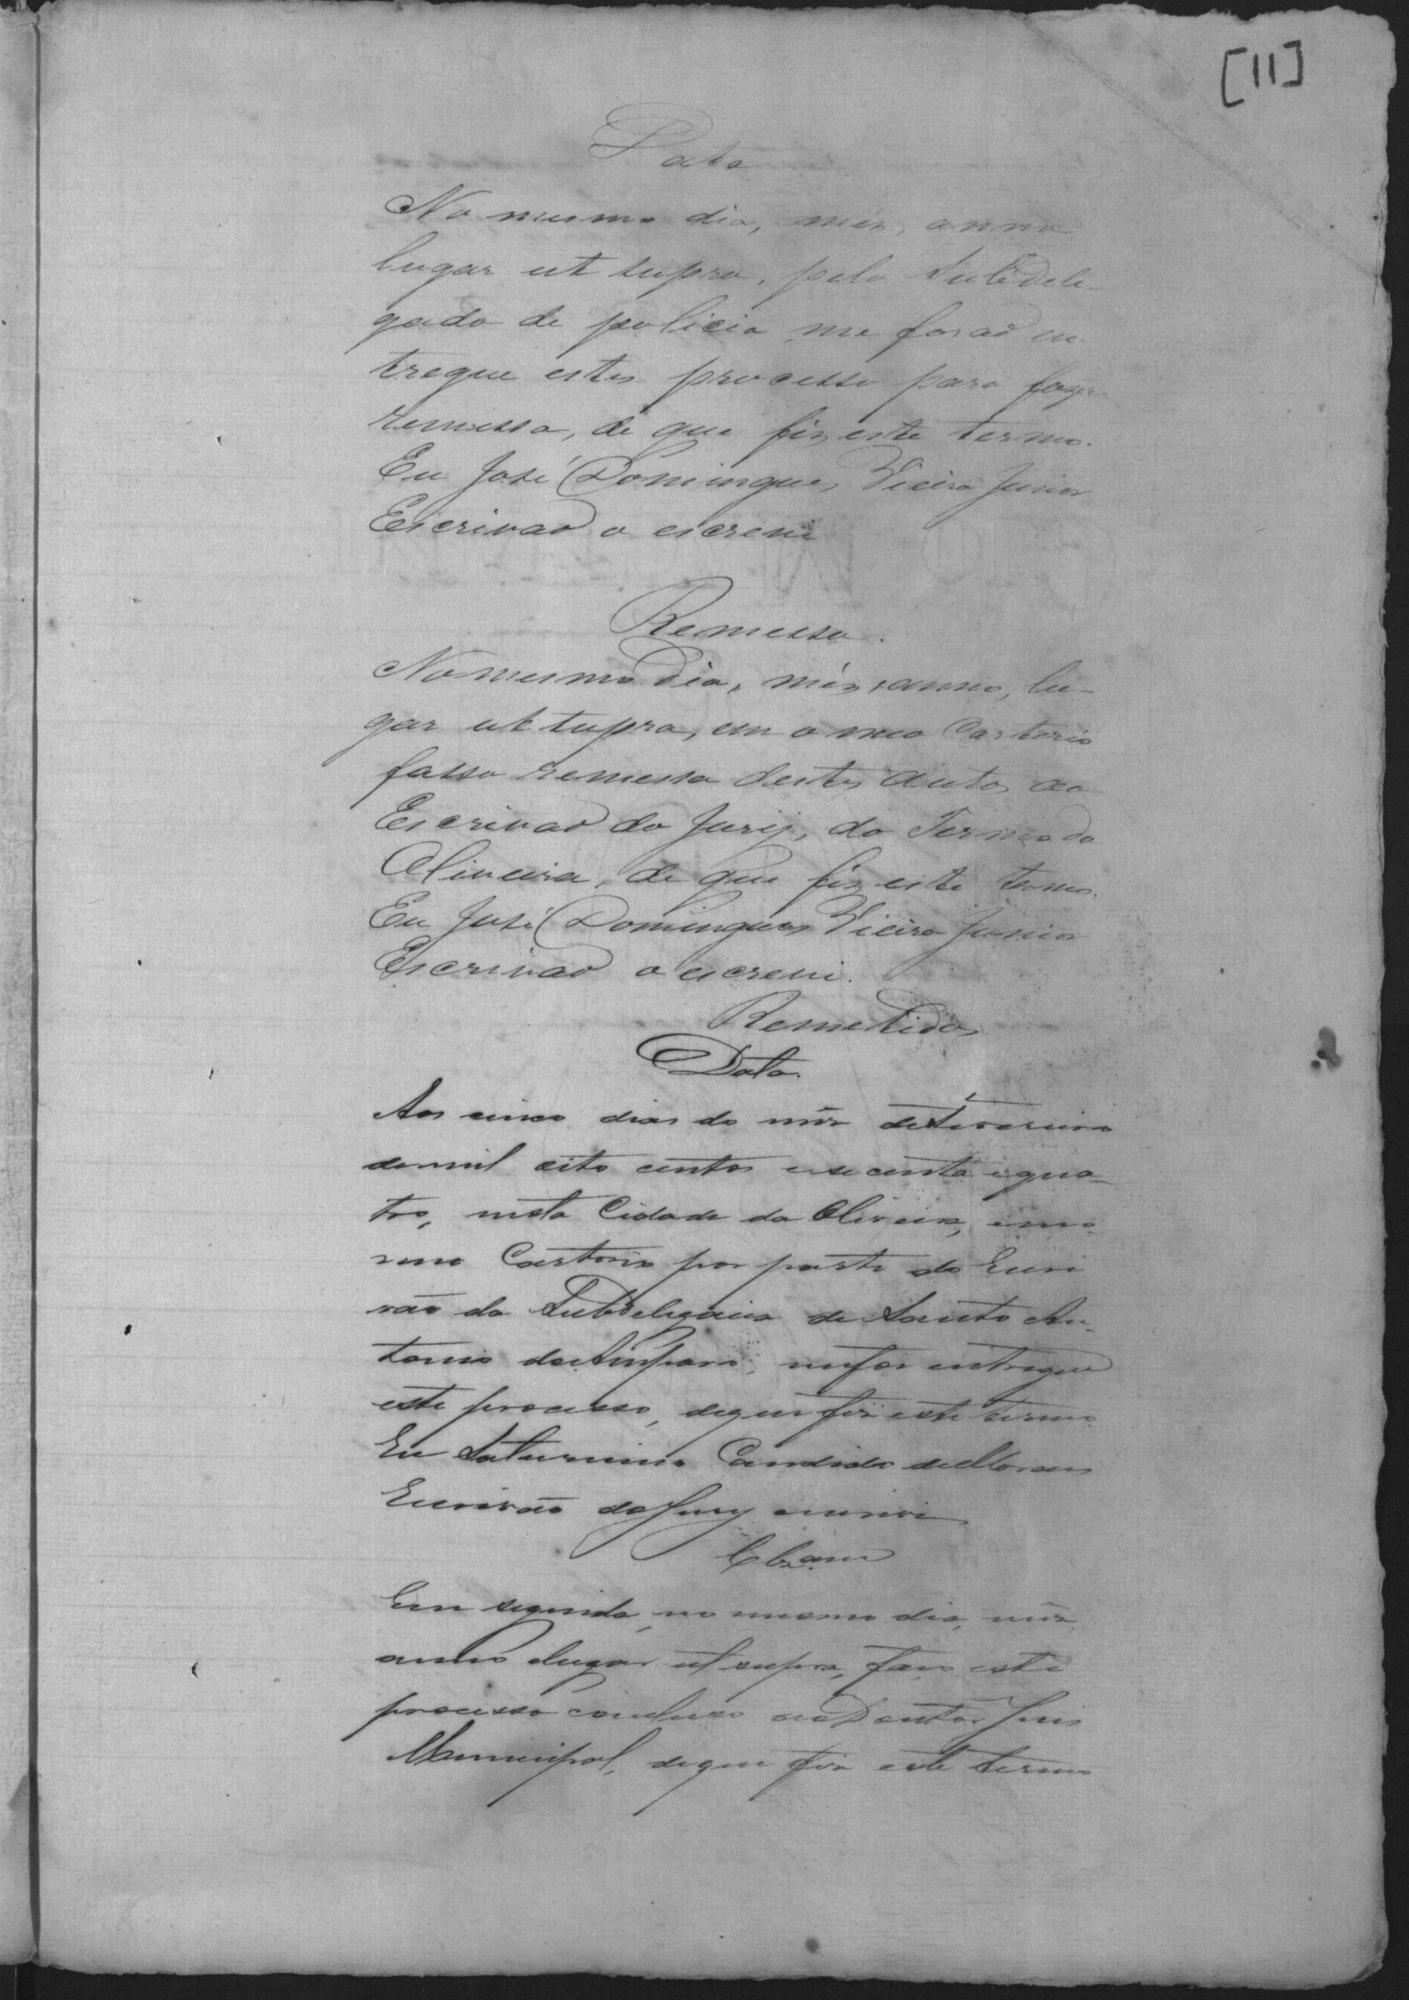 [11]
Data
No mesmo dia, mês, anno
lugar ut supra, pelo Subdele-
gado de policia me forão en-
tregue estes processo para fazer
remessa, de que fiz este termo.
Eu José Domingues Vieira Junior
Escrivão o escrevi
Remessa.
No mesmo dia, mês, anno, lu-
gar ut supra, em o meo Cartorio
fasso remessa destes autos ao
Escrivão do Jury, do Termo da
Oliveira, de que fiz este termo.
Eu José Domingues Vieira Junior
Escrivão o escrevi.
Remetidos
Data.
Aos cinco dias do mês de Fevereiro
de mil oito centos e secenta e qua-
tro, nesta Cidade da Oliveira, em o
meo Cartorio por parte do Escri
vão da Subdelegacia de Santo An-
tonio do Amparo, me foi entregue
este processo, de que fiz este termo
Eu Saturnino Candido de Moraes
Escrivão do Jury escrevi
Clzam
Em seguida, no mesmo dia, mês
anno e lugar ut supra, faço este
processo concluso ao Doutor Juis
Municipal, de que fiz este termo